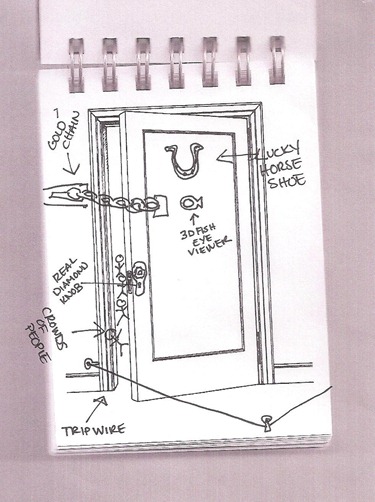 GOLD
CHAIN
LUCKY
HORSE
SHOE
3D FISH
EYE
VIEWER
REAL
DIAMOND
KNOB
CROWDS
OF
PEOPLE
TRIPWIRE